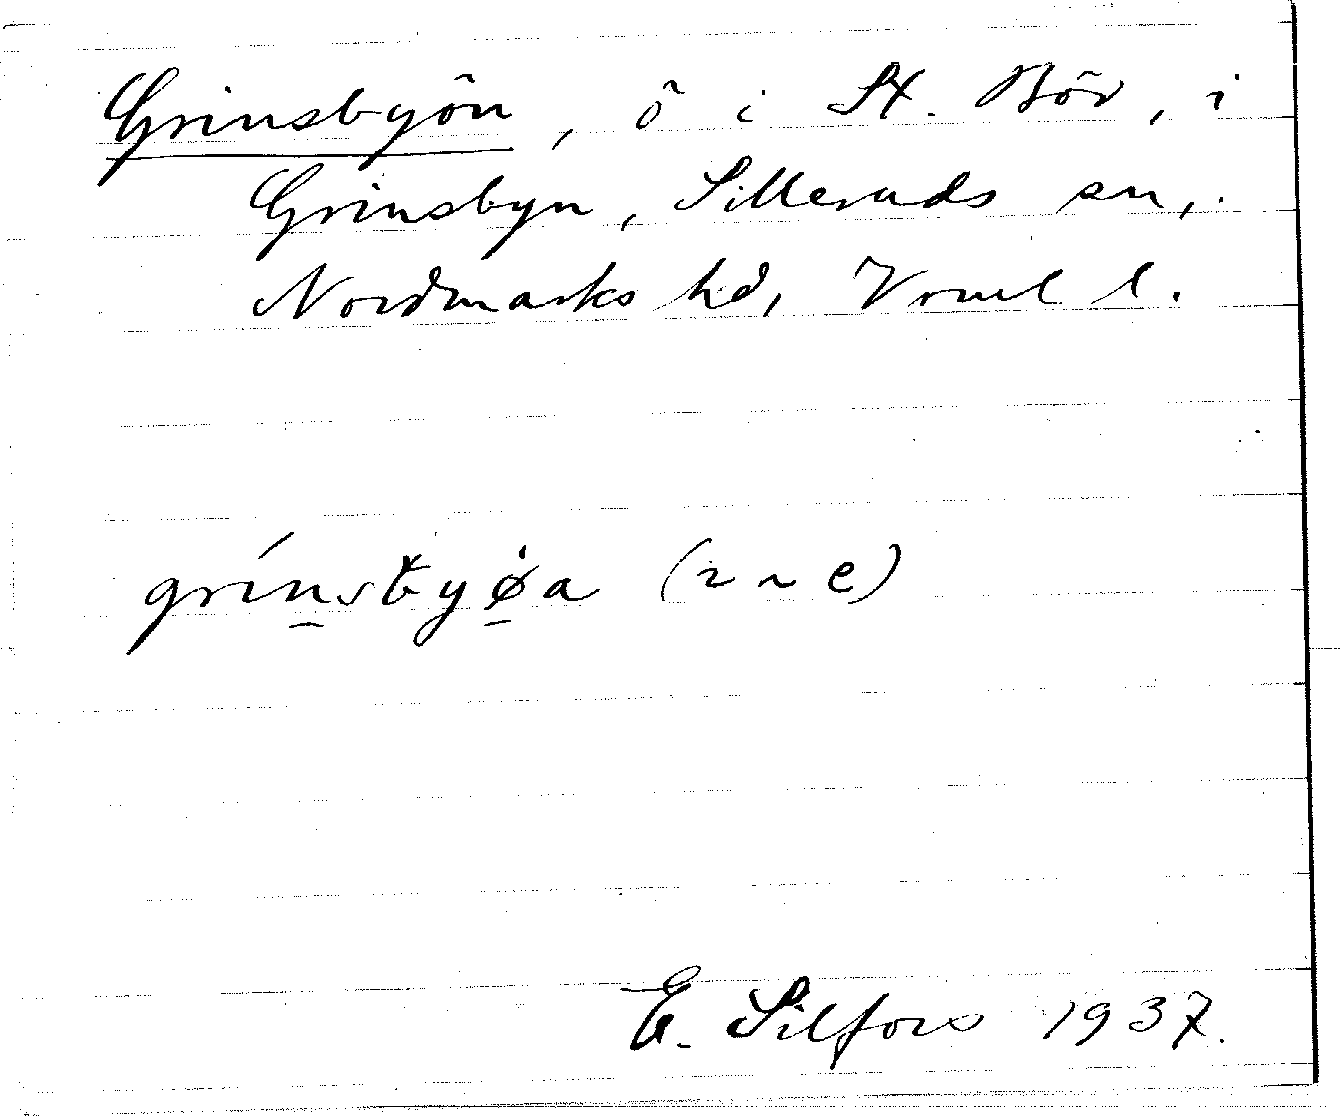 Grinsbyön, ö i St. Bör, i
Grinsbyn, Silleruds sn,
Nordmarks hd, Vrml l.
grínsbyøa (2 ~ e)
E. Silfors 1937.